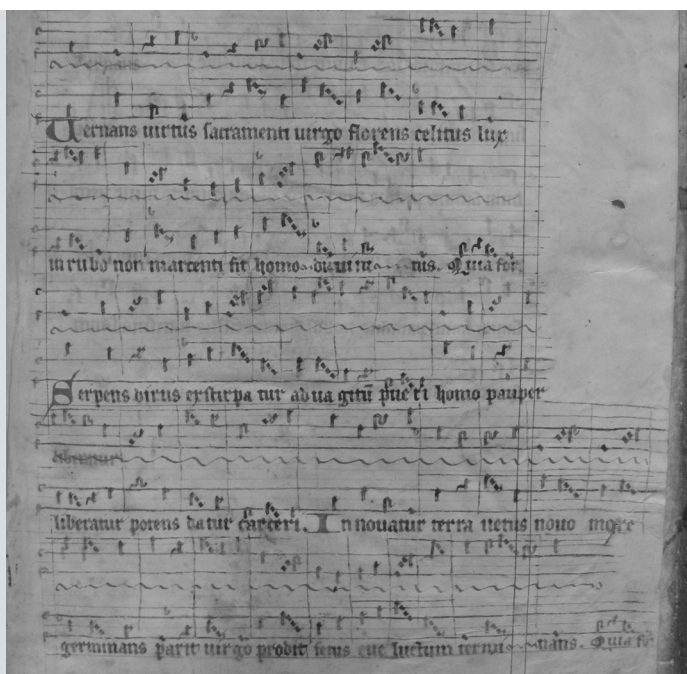 Vernans uirtus sacramenti uirgo florens celitus lux
in rubo non marcenti fit homo diuinitus. Quia for
Serpens virus exstirpatur ad ua gitū pueri homo pauper
liberatur potens datur carceri. Innouatur terra uetus nouo more
germinans parit uirgo prodit fetus eue luctum terminans. Quia for